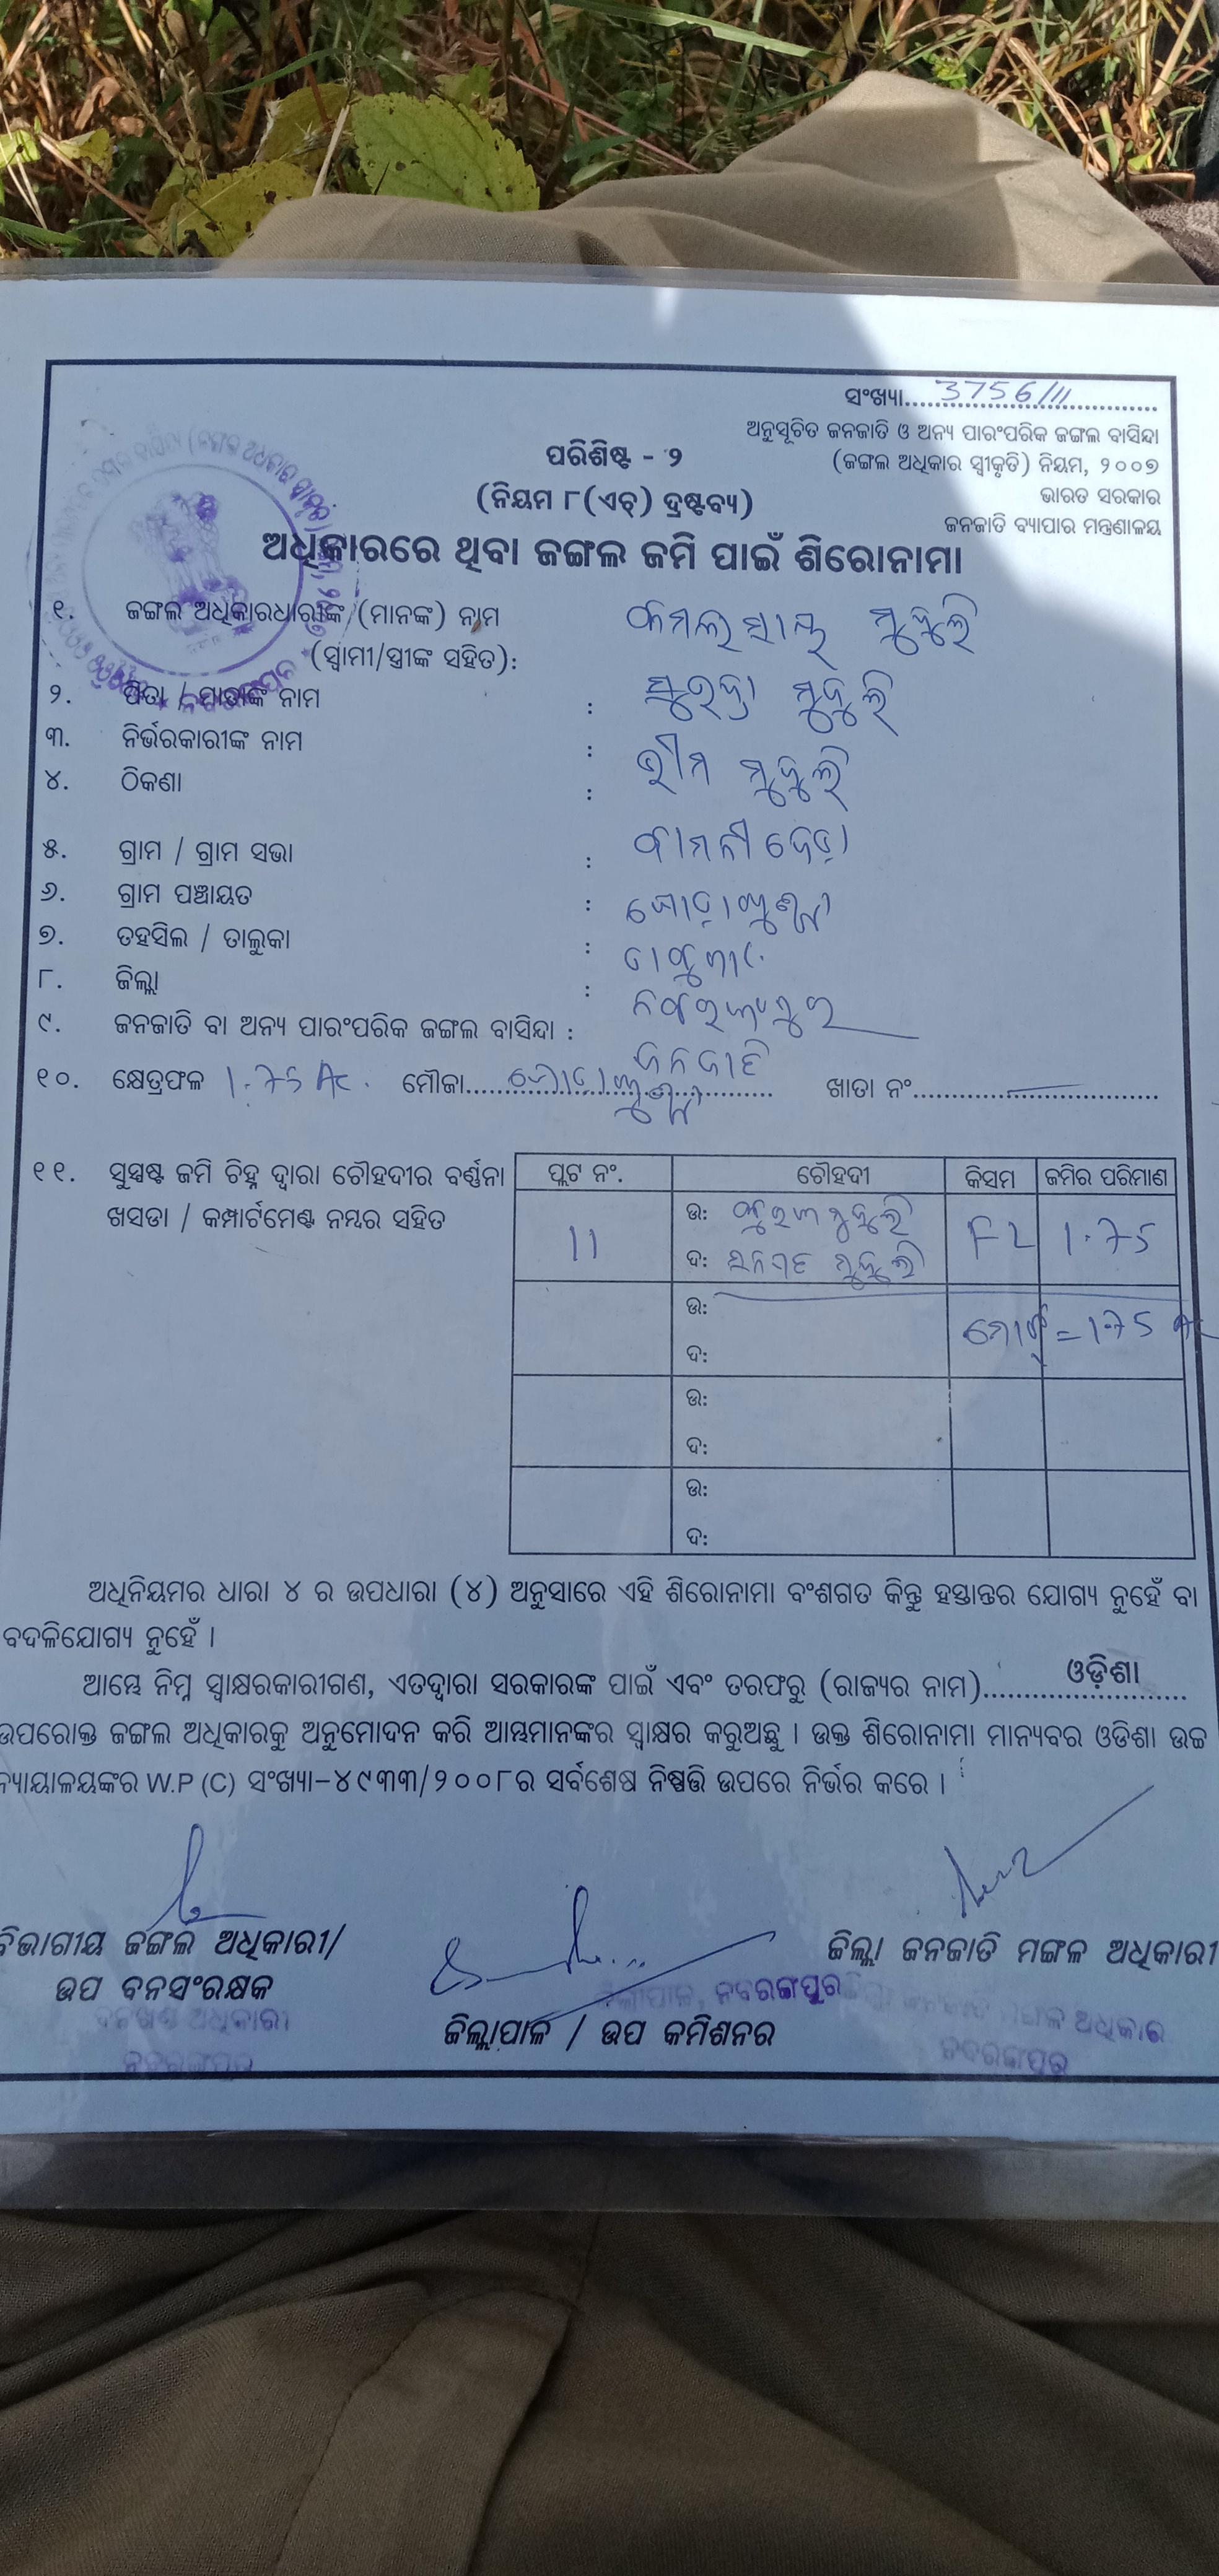 ସଂଖ୍ୟା....3756/11....
ଅନୁସୂଚିତ ଜନଜାତି ଓ ଅନ୍ୟ ପାରଂପରିକ ଜଙ୍ଗଲ ବାସିନ୍ଦା
(ଜଙ୍ଗଲ ଅଧିକାର ସ୍ୱୀକୃତି) ନିୟମ, ୨୦୦୭
ଭାରତ ସରକାର
ଜନଜାତି ବ୍ୟାପାର ମନ୍ତ୍ରଣାଳୟ
ପରିଶିଷ୍ଟ - ୨
(ନିୟମ ୮(ଏଚ୍) ଦ୍ରଷ୍ଟବ୍ୟ)
ଅଧିକାରରେ ଥିବା ଜଙ୍ଗଲ ଜମି ପାଇଁ ଶିରୋନାମା
୧. ଜଙ୍ଗଲ ଅଧିକାରଧାରୀଙ୍କ/(ମାନଙ୍କ) ନାମ ମୁଦୁଲି
(ସ୍ୱାମୀ/ସ୍ତ୍ରୀଙ୍କ ସହିତ):
୨. ପିତା / ମାତାଙ୍କ ନାମ : ମୁଦୁଲି
୩. ନିର୍ଭରକାରୀଙ୍କ ନାମ : ଭୀମ ମୁଦୁଲି
୪. ଠିକଣା :
୫. ଗ୍ରାମ / ଗ୍ରାମ ସଭା :
୬. ଗ୍ରାମ ପଞ୍ଚାୟତ :
୭. ତହସିଲ / ତାଲୁକା :
୮. ଜିଲ୍ଲା : ନବରଙ୍ଗପୁର
୯. ଜନଜାତି ବା ଅନ୍ୟ ପାରଂପରିକ ଜଙ୍ଗଲ ବାସିନ୍ଦା : ଜନଜାତି
୧୦. କ୍ଷେତ୍ରଫଳ 1.75 Ac. ମୌଜା........ ଖାତା ନଂ........
୧୧. ସୁସ୍ପଷ୍ଟ ଜମି ଚିହ୍ନ ଦ୍ୱାରା ଚୌହଦୀର ବର୍ଣ୍ଣନା
ଖସଡା / କମ୍ପାର୍ଟମେଣ୍ଟ ନମ୍ବର ସହିତ
ପ୍ଲଟ ନଂ. ଚୌହଦୀ କିସମ ଜମିର ପରିମାଣ
11 ଉ: ମୁଦୁଲି FL 1.75
ଦ: ମୁଦୁଲି
ଉ:
ମୋଟ୍ = 1.75 Ac
ଦ:
ଉ:
ଦ:
ଉ:
ଦ:
ଅଧିନିୟମର ଧାରା ୪ ର ଉପଧାରା (୪) ଅନୁସାରେ ଏହି ଶିରୋନାମା ବଂଶଗତ କିନ୍ତୁ ହସ୍ତାନ୍ତର ଯୋଗ୍ୟ ନୁହେଁ ବା
ବଦଳିଯୋଗ୍ୟ ନୁହେଁ ।
ଆମ୍ଭେ ନିମ୍ନ ସ୍ୱାକ୍ଷରକାରୀଗଣ, ଏତଦ୍ୱାରା ସରକାରଙ୍କ ପାଇଁ ଏବଂ ତରଫରୁ (ରାଜ୍ୟର ନାମ)....ଓଡ଼ିଶା....
ଉପରୋକ୍ତ ଜଙ୍ଗଲ ଅଧିକାରକୁ ଅନୁମୋଦନ କରି ଆମ୍ଭମାନଙ୍କର ସ୍ୱାକ୍ଷର କରୁଅଛୁ । ଉକ୍ତ ଶିରୋନାମା ମାନ୍ୟବର ଓଡିଶା ଉଚ୍ଚ
ନ୍ୟାୟାଳୟଙ୍କର W.P (C) ସଂଖ୍ୟା-୪୯୩୩/୨୦୦୮ର ସର୍ବଶେଷ ନିଷ୍ପତ୍ତି ଉପରେ ନିର୍ଭର କରେ ।
ବିଭାଗୀୟ ଜଙ୍ଗଲ ଅଧିକାରୀ/
ଉପ ବନସଂରକ୍ଷକ
ବନଖଣ୍ଡ ଅଧିକାରୀ
ନବରଙ୍ଗପୁର
ଜିଲ୍ଲାପାଳ, ନବରଙ୍ଗପୁର
ଜିଲ୍ଲାପାଳ / ଉପ କମିଶନର
ଜିଲ୍ଲା ଜନଜାତି ମଙ୍ଗଳ ଅଧିକାରୀ
ଜିଲ୍ଲା ମଙ୍ଗଳ ଅଧିକାରୀ
ନବରଙ୍ଗପୁର